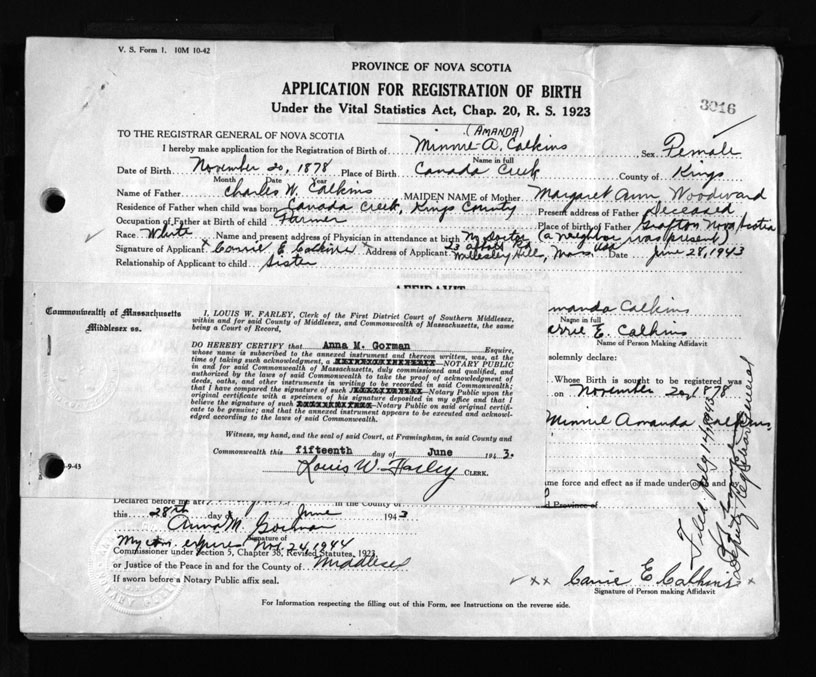 V. S. Form 1. 10M 10-42
PROVINCE OF NOVA SCOTIA
APPLICATION FOR REGISTRATION OF BIRTH
Under the Vital Statistics Act, Chap. 20, R. S. 1923
3016
(AMANDA)
TO THE REGISTRAR GENERAL OF NOVA SCOTIA
I hereby make application for the Registration of Birth of Minnie A. Calkins Sex Female
Name in full
Date of Birth November 20, 1878 Place of Birth Canada Creek County of Kings
Month Date Year
Name of Father Charles W. Calkins MAIDEN NAME of Mother Margaret Ann Woodward
Residence of Father when child was born Canada Creek, Kings County Present address of Father deceased
Occupation of Father at Birth of child Farmer Place of birth of Father Grafton Nova Scotia
Race White Name and present address of Physician in attendance at birth No doctor (a neighbor was present)
Signature of Applicant x Carrie E. Calkins x Address of Applicant 23 Abbott Rd Wellesley Hills, Mass. USA Date June 28, 1943
Relationship of Applicant to child Sister
AFFIDAVIT
Commonwealth of Massachusetts
Middlesex ss.
I, LOUIS W. FARLEY, Clerk of the First District Court of Southern Middlesex,
within and for said County of Middlesex, and Commonwealth of Massachusetts, the same
being a Court of Record,
DO HEREBY CERTIFY that Anna M. Gorman Esquire,
whose name is subscribed to the annexed instrument and thereon written, was, at the
time of taking such acknowledgment, a NOTARY PUBLIC
in and for said Commonwealth of Massachusetts, duly commissioned and qualified, and
authorized by the laws of said Commonwealth to take the proof of acknowledgment of
deeds, oaths, and other instruments in writing to be recorded in said Commonwealth;
that I have compared the signature of such Notary Public upon the
original certificate with a specimen of his signature deposited in my office and that I
believe the signature of such Notary Public on said original certifi-
cate to be genuine; and that the annexed instrument appears to be executed and acknowl-
edged according to the laws of said Commonwealth.
Witness, my hand, and the seal of said Court, at Framingham, in said County and
Commonwealth this fifteenth day of June 1943.
Louis W. Farley CLERK.
-9-43
manda Calkins
Name in full
arrie E. Calkins
Name of Person Making Affidavit
solemnly declare:
Whose Birth is sought to be registered was
on November 20, 1878
Minnie Amanda Calkins
me force and effect as if made under oath and
d Province of
Filed July 14 1943
Deputy Registrar General
Declared before me at in the County of
this 28th day of June 1943
Anna M. Gorman
Signature of
My com. expires Nov. 24, 1944
Commissioner under Section 5, Chapter 38, Revised Statutes, 1923
or Justice of the Peace in and for the County of Middlesex
If sworn before a Notary Public affix seal.
xx Carrie E Calkins x
Signature of Person making Affidavit
For Information respecting the filling out of this Form, see Instructions on the reverse side.